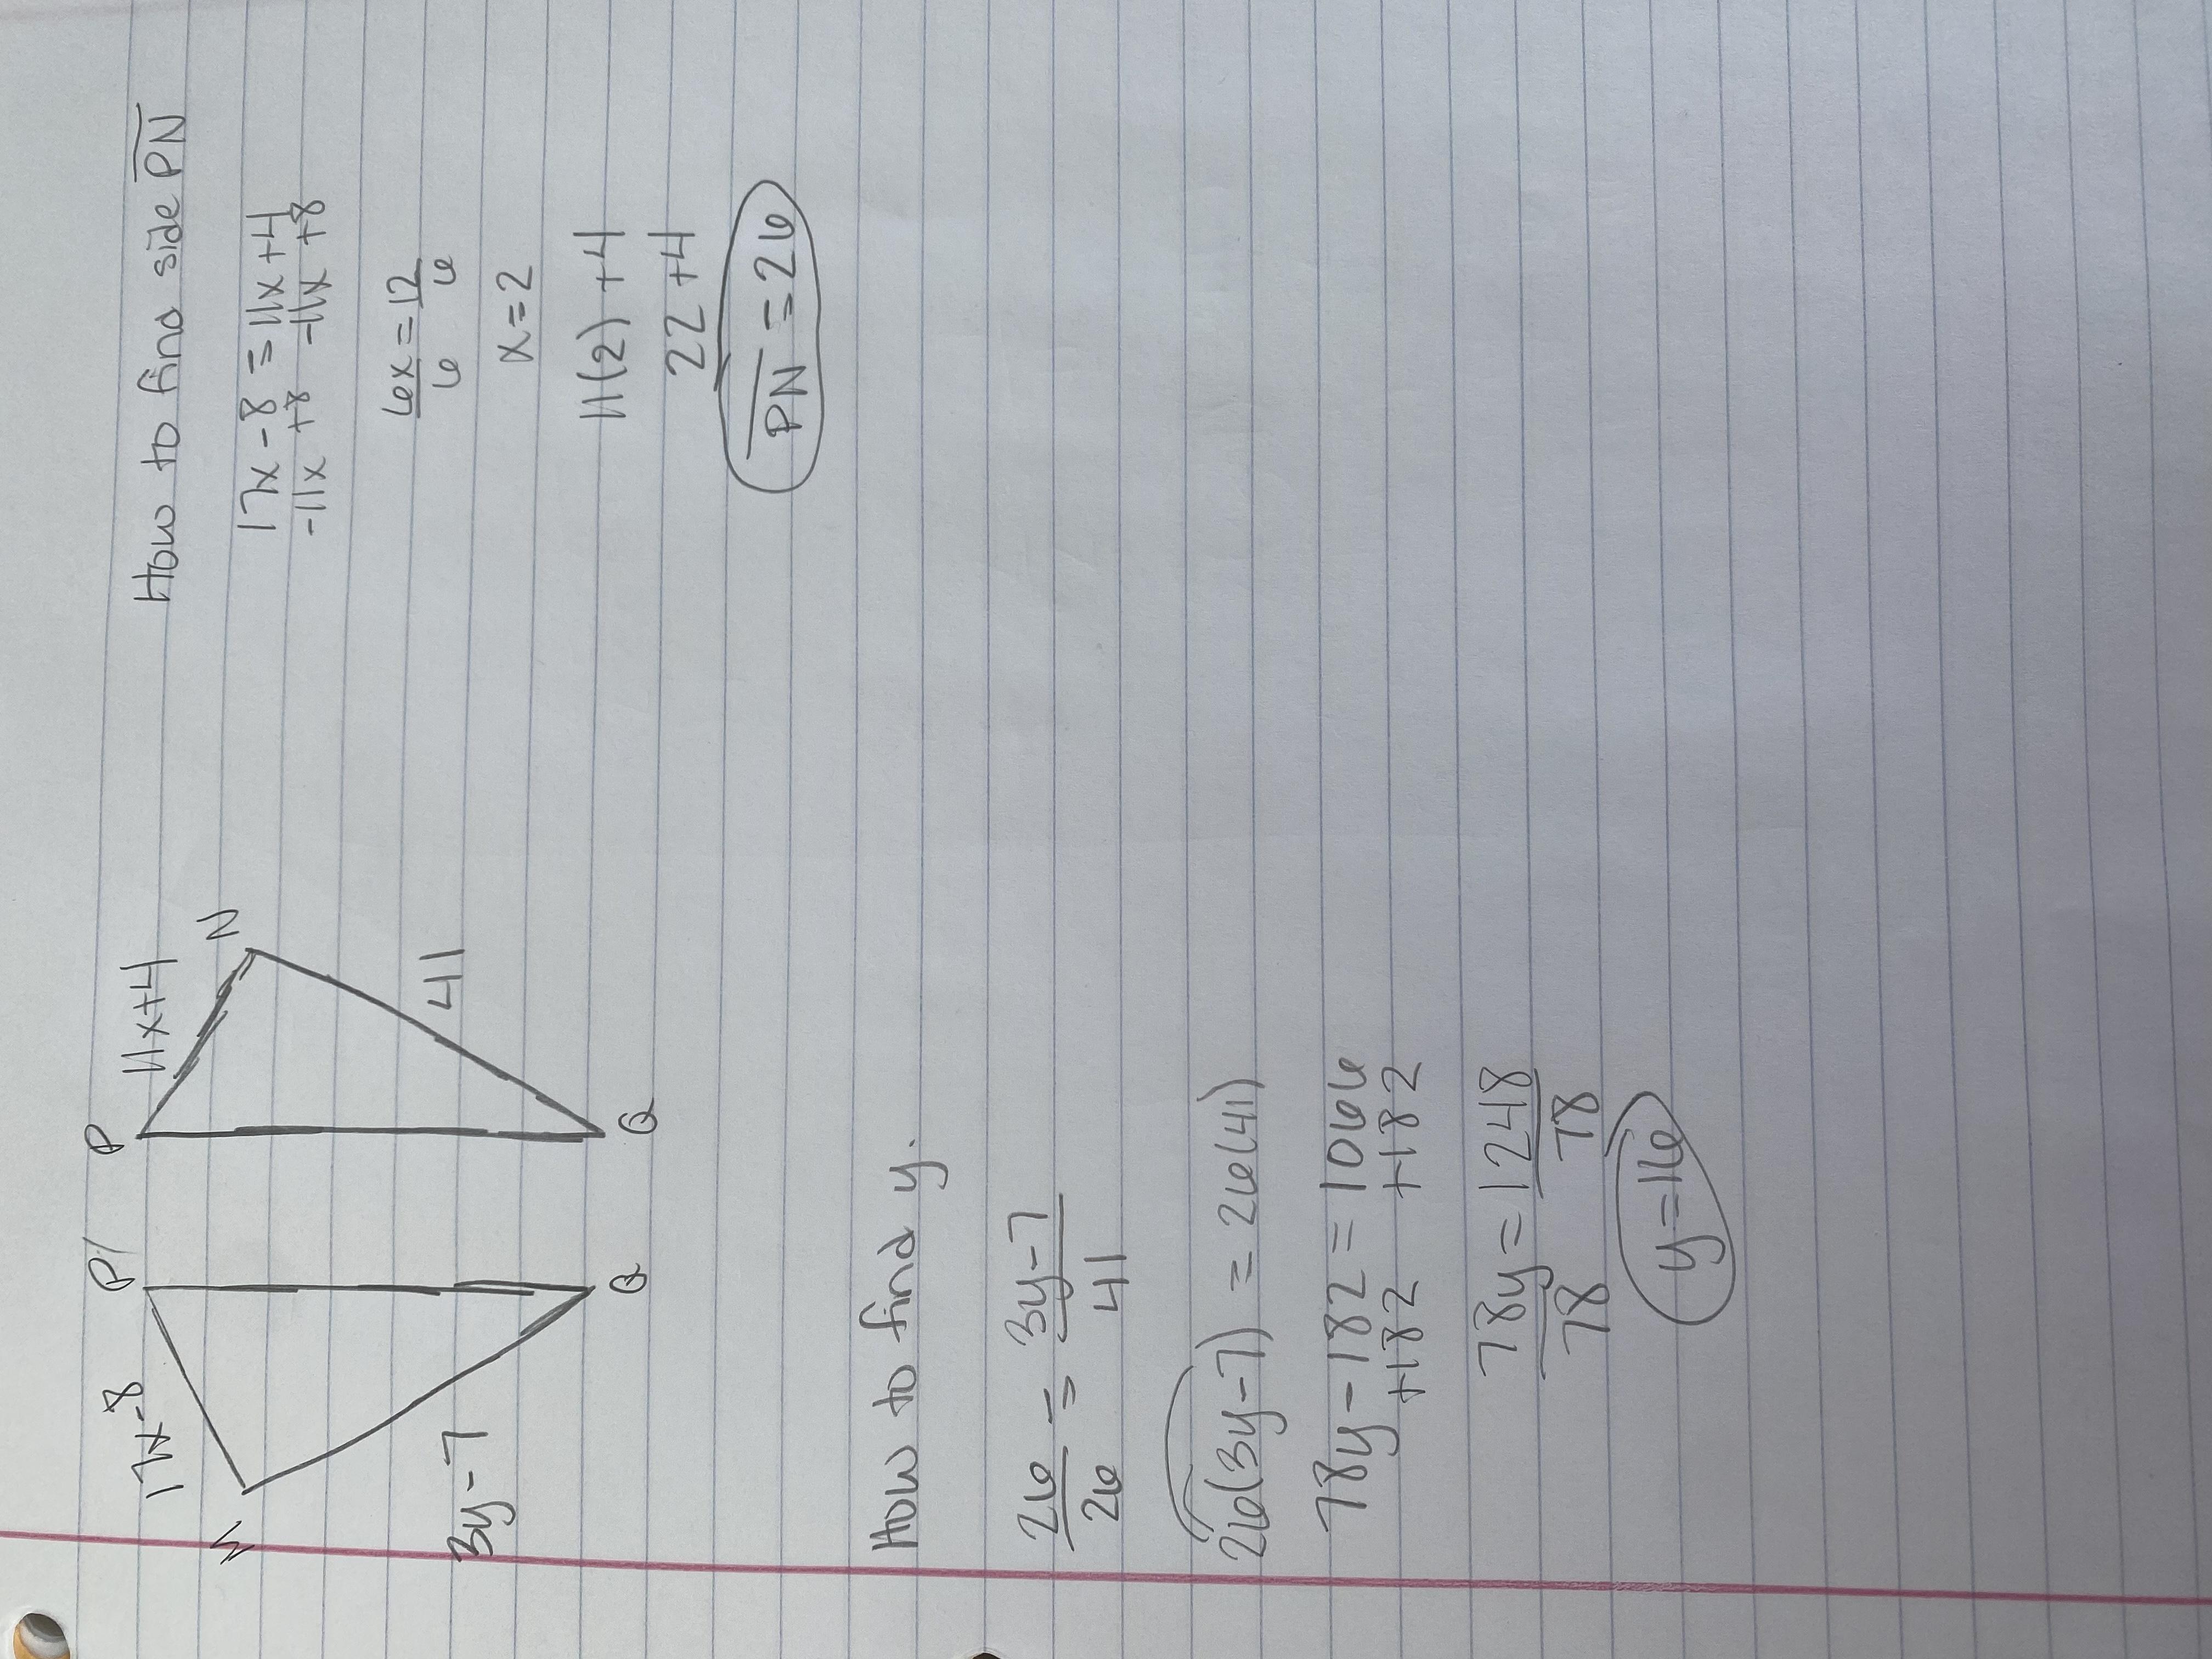 P P
17x-8 11x+4
M N
3y-7 41
Q Q
How to find side PN
17x-8=11x+4
-11x +8 -11x +8
6x=12
6 6
x=2
11(2)+4
22+4
PN=26
How to find y.
26 = 3y-7
26 41
26(3y-7)=26(41)
78y-182=1066
+182 +182
78y=1248
78 78
y=16